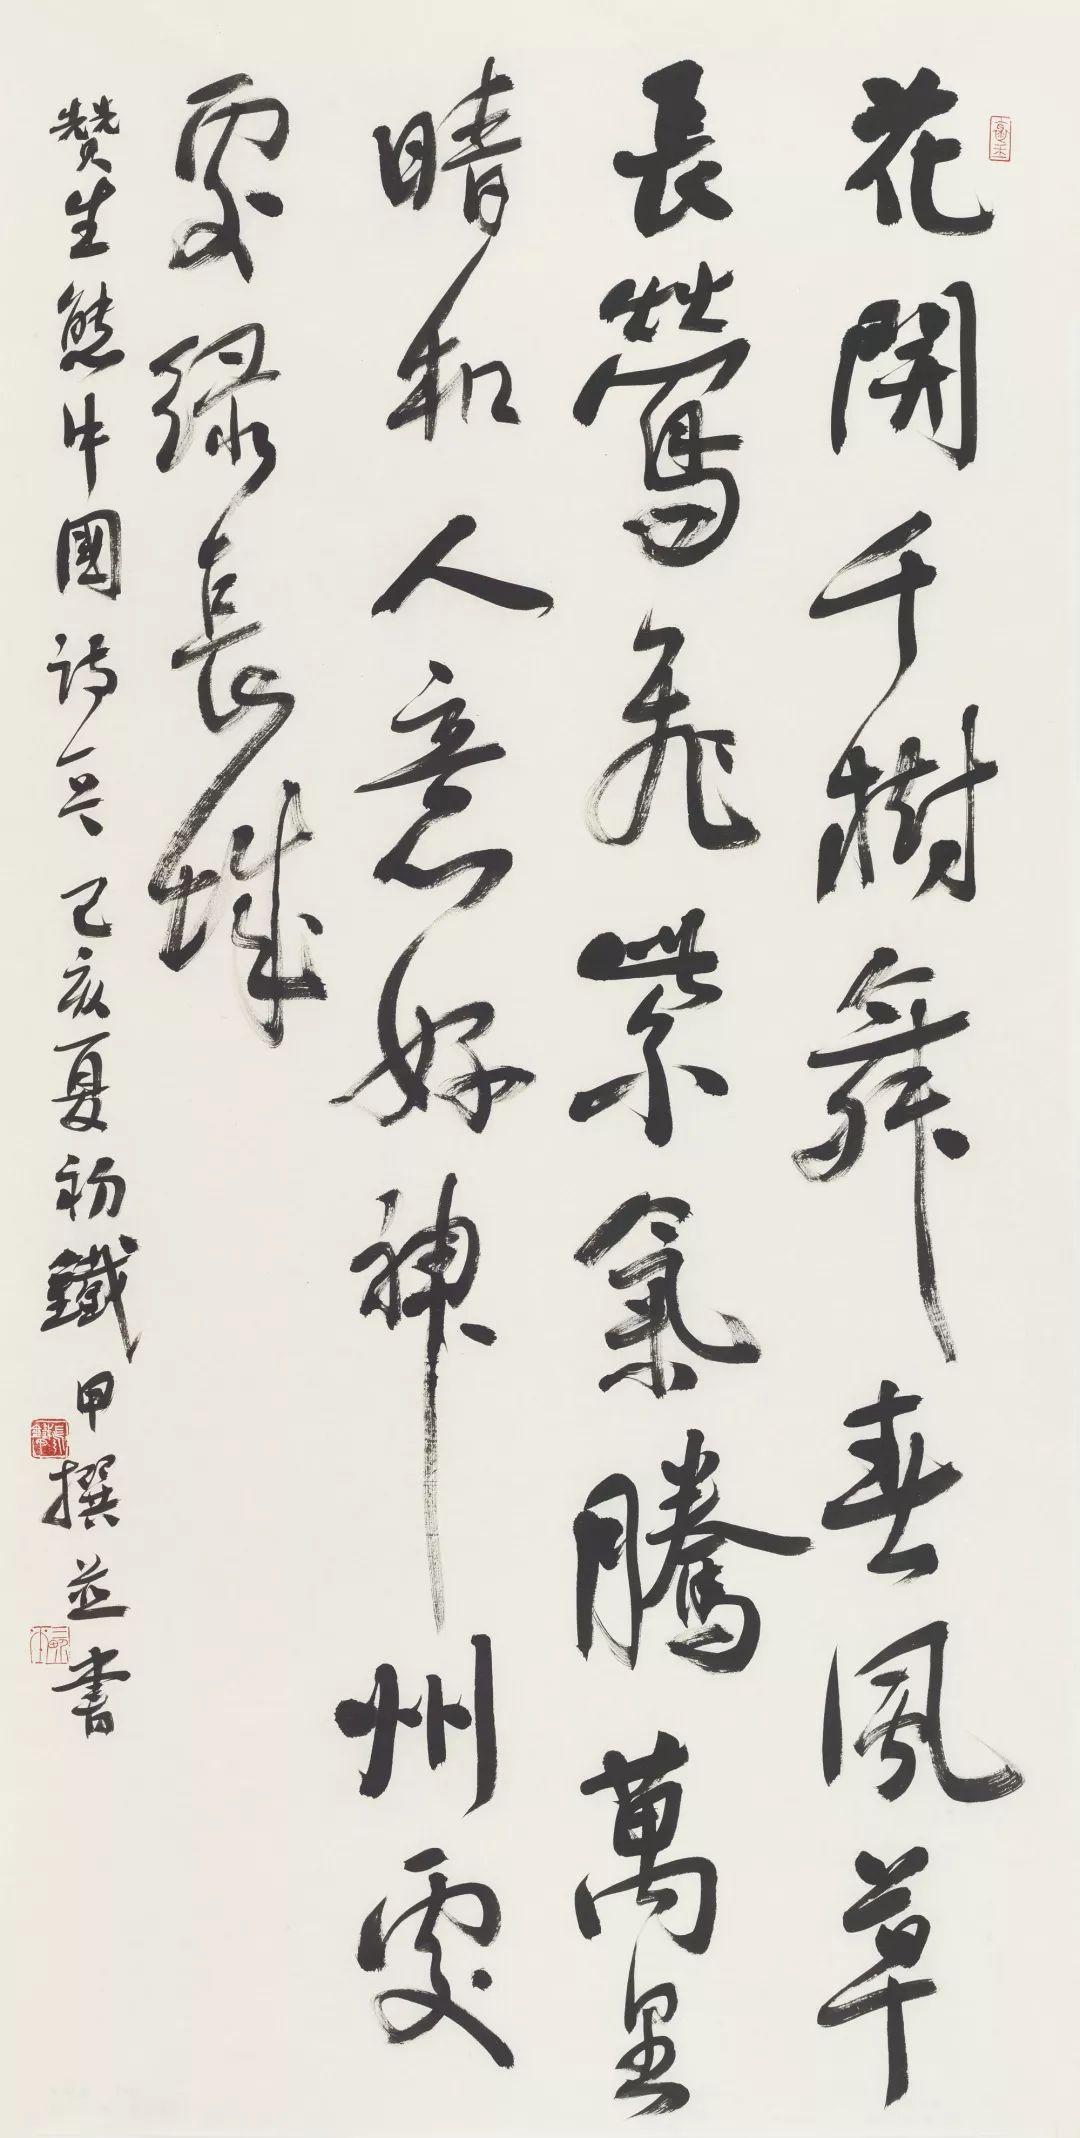 花開千樹舞春風草
長鶯飛紫氣騰萬里
晴和人意好神州處
處綠長城
赞生態中國詩一首己亥夏初鐵甲撰並書